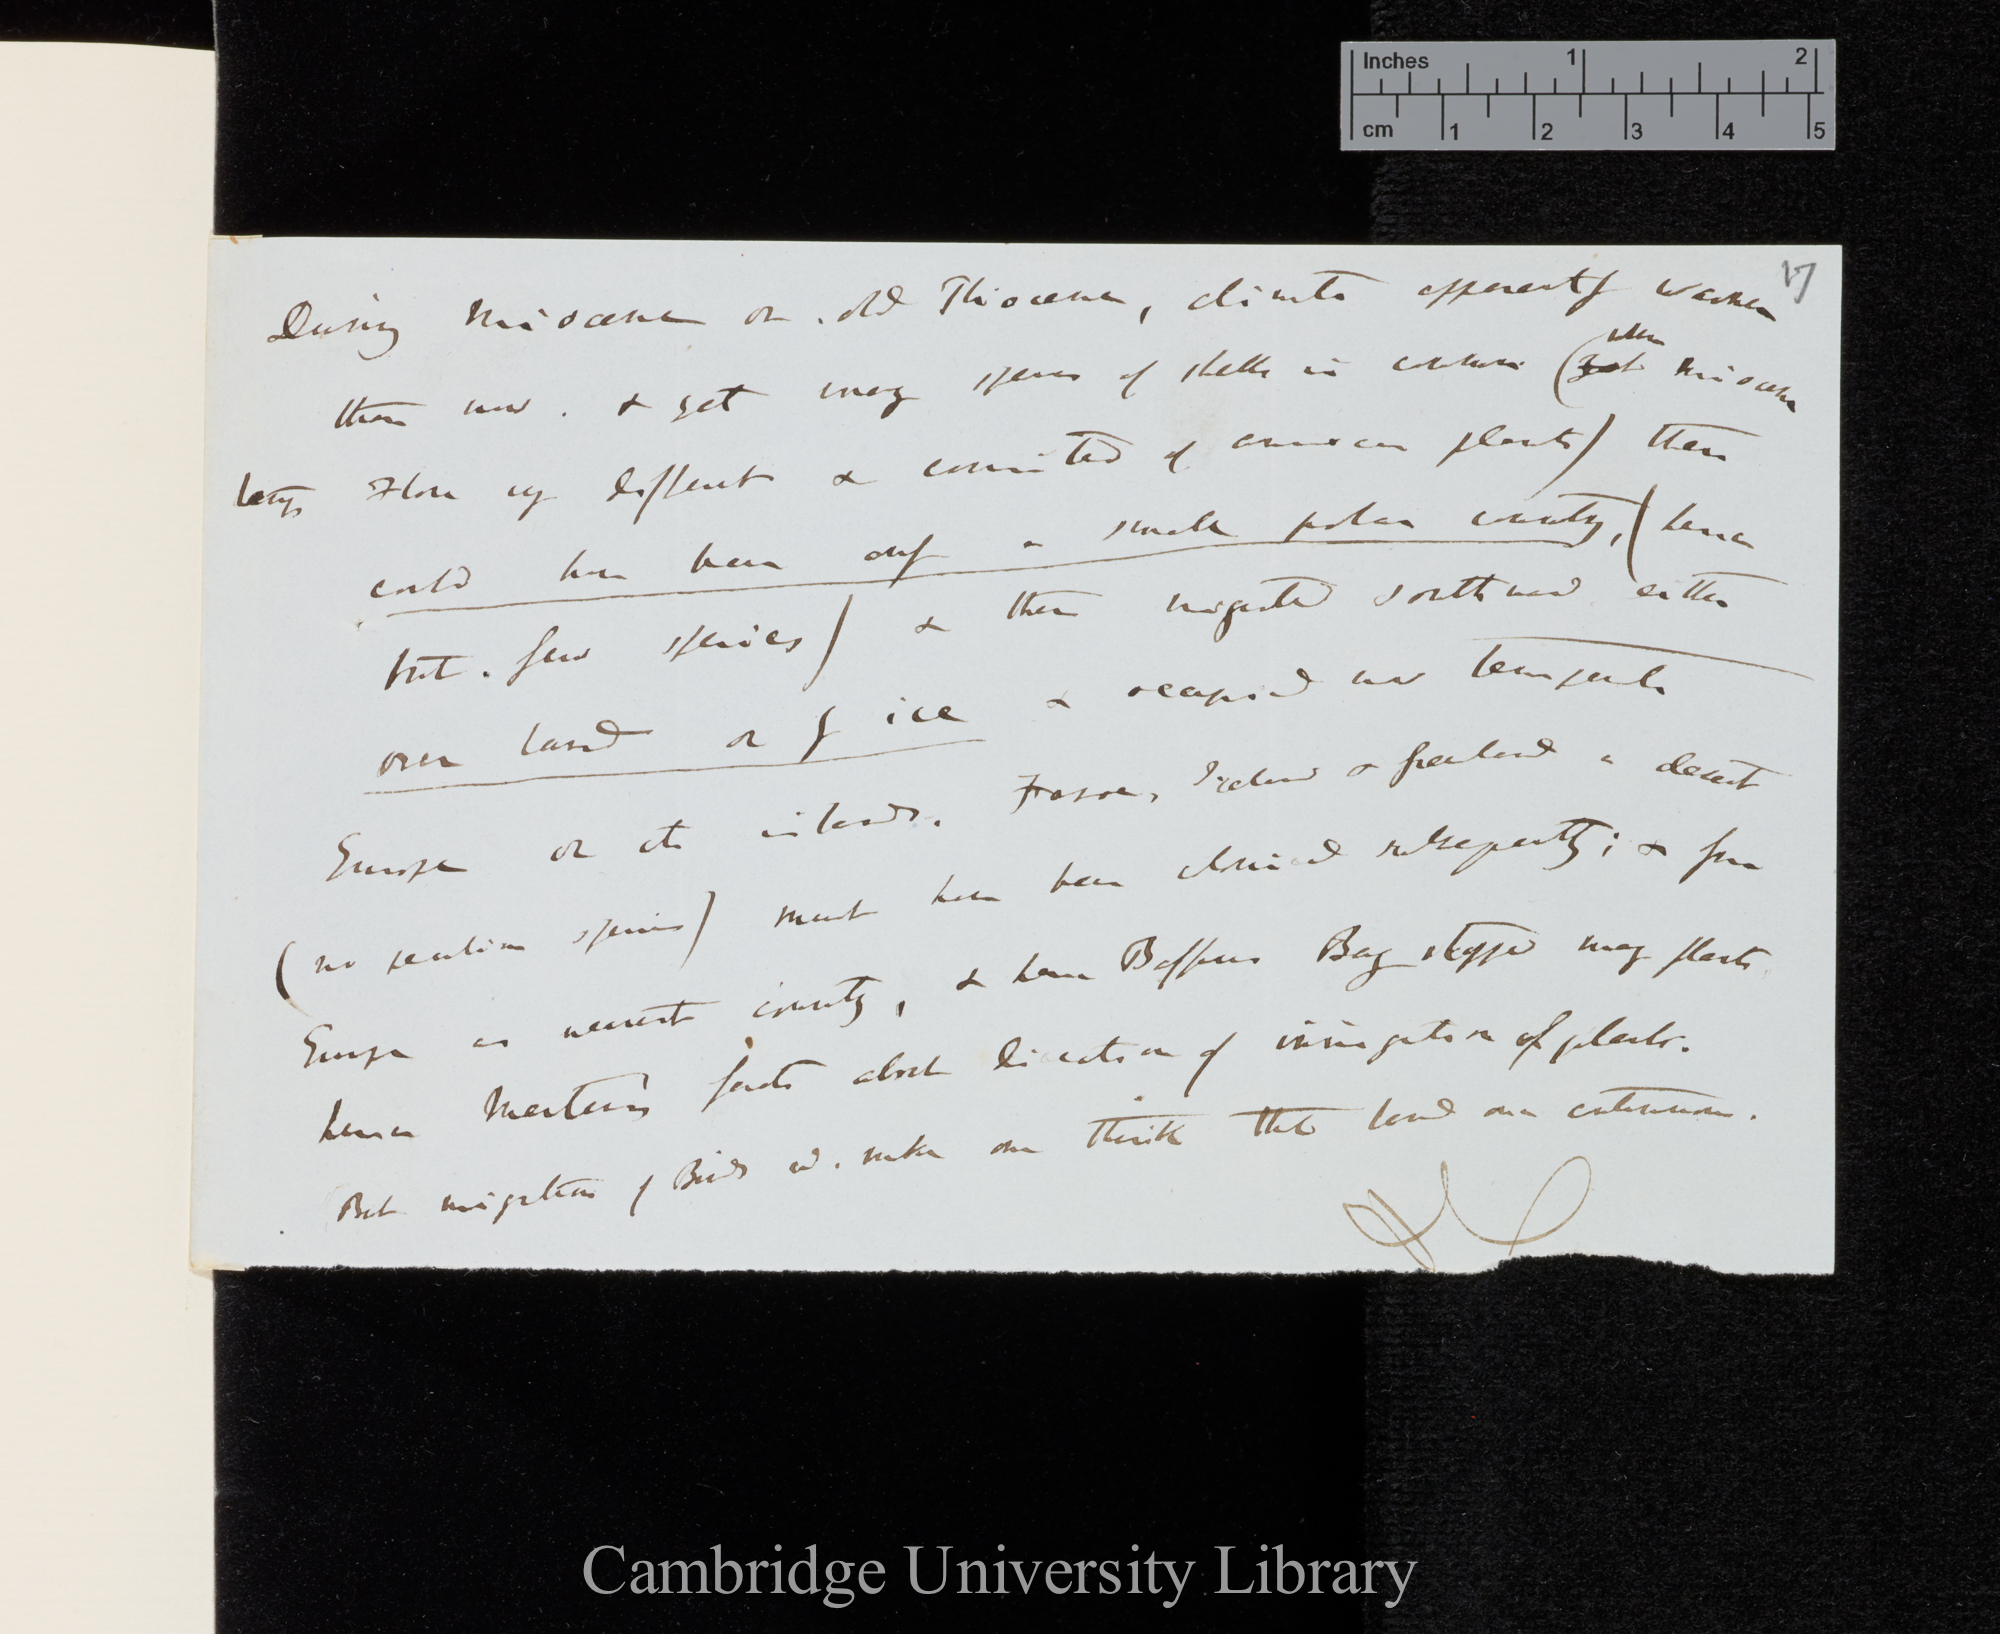 Inches 1 2
cm 1 2 3 4 5
17
During Miocene or old Pliocene, climate apparently warmer
than now. & yet many species of shells in common (yet when Miocene
Flora very different & consisted of American plants) there
could have been only a small polar country, (hence
but few species) & then migrated southward either
over land or by ice & occupied now temperate
Europe or its islands. Faroe, Iceland & Greenland a desert
(no peculiar species) must have been colonised subsequently; & from
Europe as nearest country, & hence Baffins Bay stopped many plants
hence Martens facts about direction of immigration of plants.
But migration of Birds wd. make one think that land once continuous.
Cambridge University Library